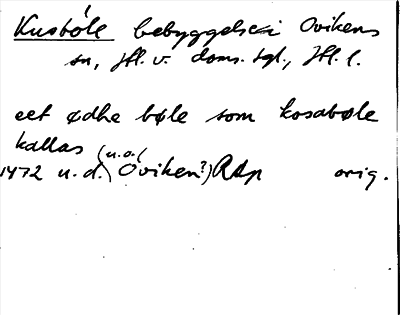 Kusböle bebyggelse i Ovikens
sn, Jtl. v. doms. tgl., Jtl. l.
eet ødhe bøle som kosabøle
kallas
1472 u.d. (u.o. (Oviken?) RAp orig.